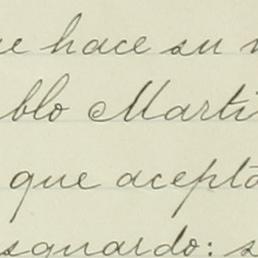 ue hace su
blo Marti
que acepta
sguardo: s